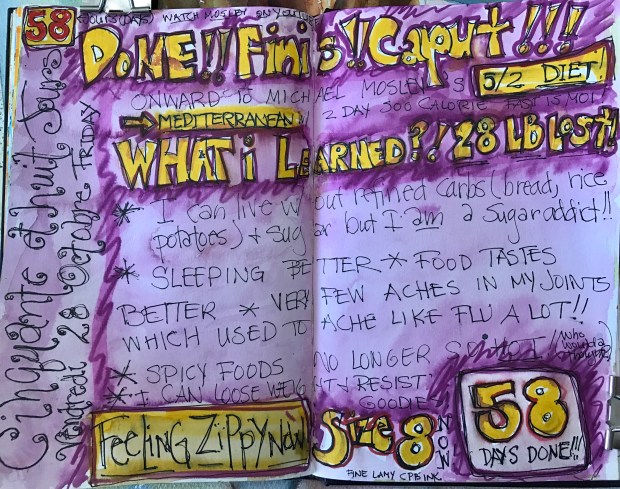 58 HOURS (DAYS) WATCH MOSLEY ON YOUTUBE
DONE!! Finis!! Caput!!!
ONWARD TO MICHAEL MOSLEY'S 5/2 DIET
2 DAY 500 CALORIE FAST IS NOT
MEDITERRANEAN
WHAT i LEARNED?! 28 LB LOST!
* I can live without refined carbs (bread, rice
potatoes) + sugar but I am a sugar addict!!
* SLEEPING BETTER * FOOD TASTES
BETTER * VERY FEW ACHES IN MY JOINTS
WHICH USED TO ACHE LIKE FLU A LOT!!
* SPICY FOODS NO LONGER
* I CAN LOOSE WEIGHT + RESIST
GOODIE
FEELING ZIPPY NOW Size 8 NOW
58
DAYS DONE!!!
FINE LAMY CPB INK
Cinquante et huit Jours
Vendredi 28 Octobre FRIDAY